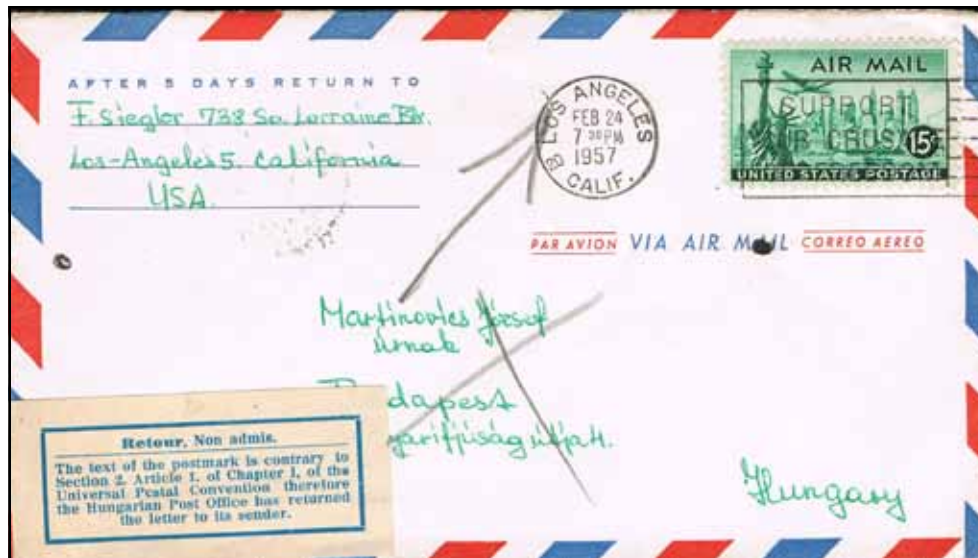 AFTER 5 DAYS RETURN TO
F. Siegler 738 So. Lorraine Blv.
Los-Angeles 5. California
USA.
LOS ANGELES
FEB 24
7 30 PM
1957
2 CALIF.
AIR MAIL
SUPPORT
CRUSADE
15¢
UNITED STATES POSTAGE
PAR AVION VIA AIR MAIL CORREO AEREO
Martinovics József
úrnak
Budapest
útja 4.
Hungary
Retour, Non admis.
The text of the postmark is contrary to
Section 2. Article 1. of Chapter I, of the
Universal Postal Convention therefore
the Hungarian Post Office has returned
the letter to its sender.